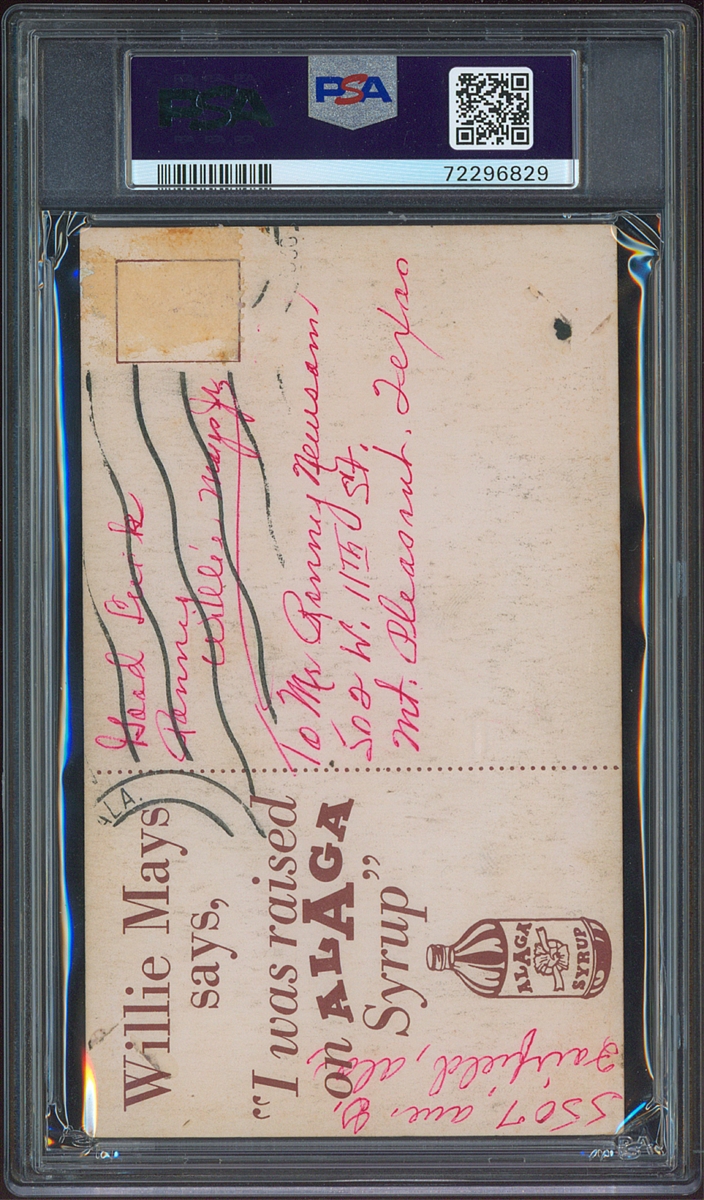 PSA
72296829
Willie Mays
says,
"I was raised
on ALAGA
Syrup"
ALAGA
SYRUP
ALA.
Good Luck
Ronny
Willie Mays Jr.
To Mr Ronny Newsom
502 W. 11Th St.
Mt. Pleasant, Texas
5507, ave. D,
Fairfield, ala.